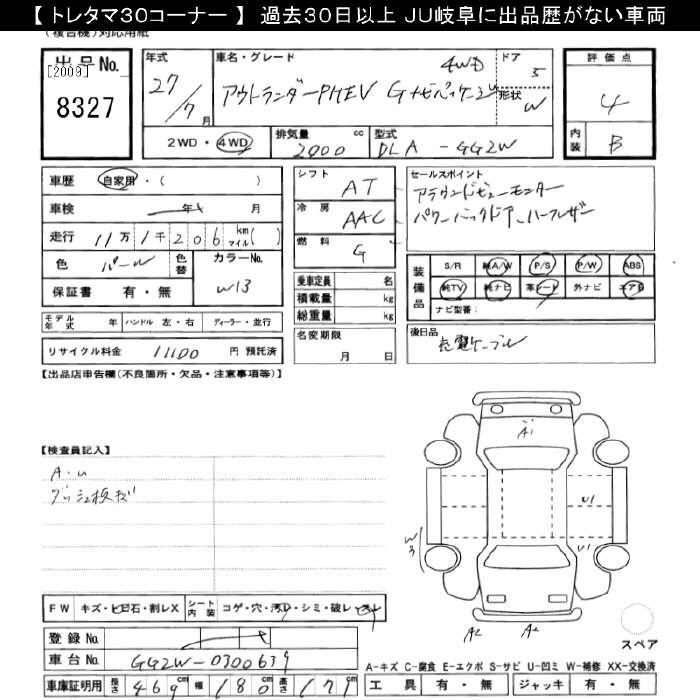 【 トレタマ30コーナー 】 過去30日以上 JU岐阜に出品歴がない車両
(複合機)対応用紙
出品No.
[2009]
8327
年式
27/7月
車名・グレード
アウトランダーPHEV Gナビパッケージ
4WD
ドア
5
形状
W
評価点
4
内装
B
2WD・4WD
排気量 cc
2000
型式
DLA - GG2W
車歴 自家用・( )
車検 年 月
走行 11万1千206 km マイル( )
色 パール
色替
カラーNo.
W13
保証書 有・無
シフト AT
冷房 AAC
燃料 G
乗車定員 名
積載量 kg
総重量 kg
名変期限
月 日
セールスポイント
アラウンドビューモニター
パワーバックドア、ハーフレザー
装備品
S/R 純A/W P/S P/W ABS
純TV 純ナビ 革シート 外ナビ エアB
ナビ型番:
モデル年式 年 ハンドル 左・右 ディーラー・並行
リサイクル料金 11100 円 預託済
後日品
充電ケーブル
【出品店申告欄(不良箇所・欠品・注意事項等)】
【検査員記入】
A・U
ダッシュ板キズ
A1
U1
U1
W3
A2
A2
スペア
FW キズ・ヒビ石・割レX シート内装 コゲ・穴・汚レ・シミ・破レ・スレ
登録No.
車台No. GG2W-0300639
車庫証明用 長さ 469 cm 幅 180 cm 高さ 171
A-キズ C-腐食 E-エクボ S-サビ U-凹ミ W-補修 XX-交換済
工具 有・無 ジャッキ 有・無